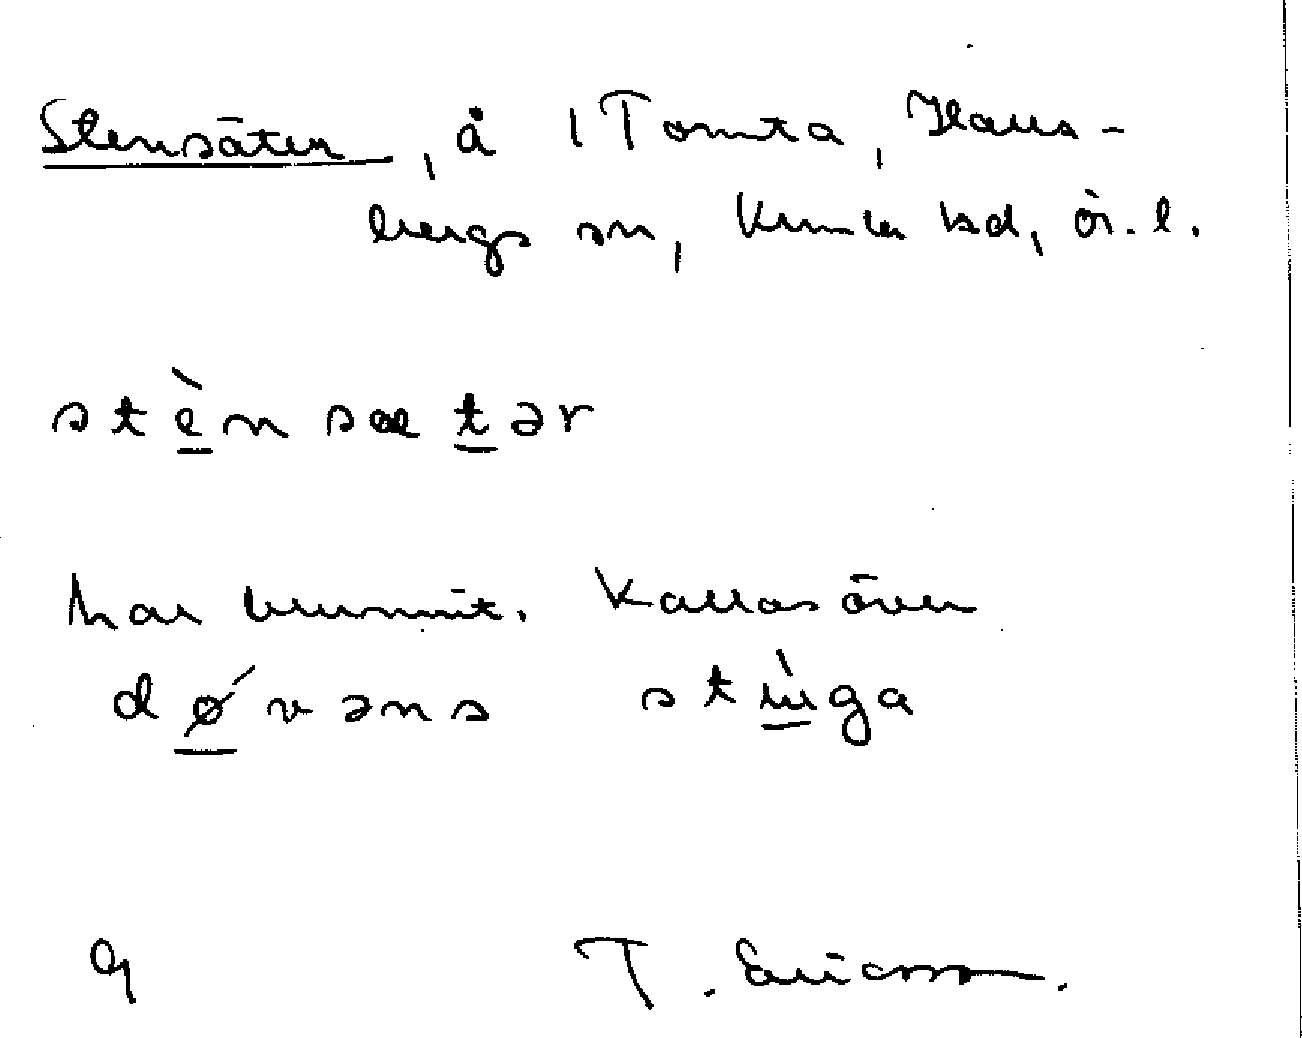 Stensäter, å 1 Tomta, Halls-
bergs sn, Kumla hd, ör. l.
stènsætər
har brunnit. Kallas även
døvəns stùga
9 T. Ericsson.